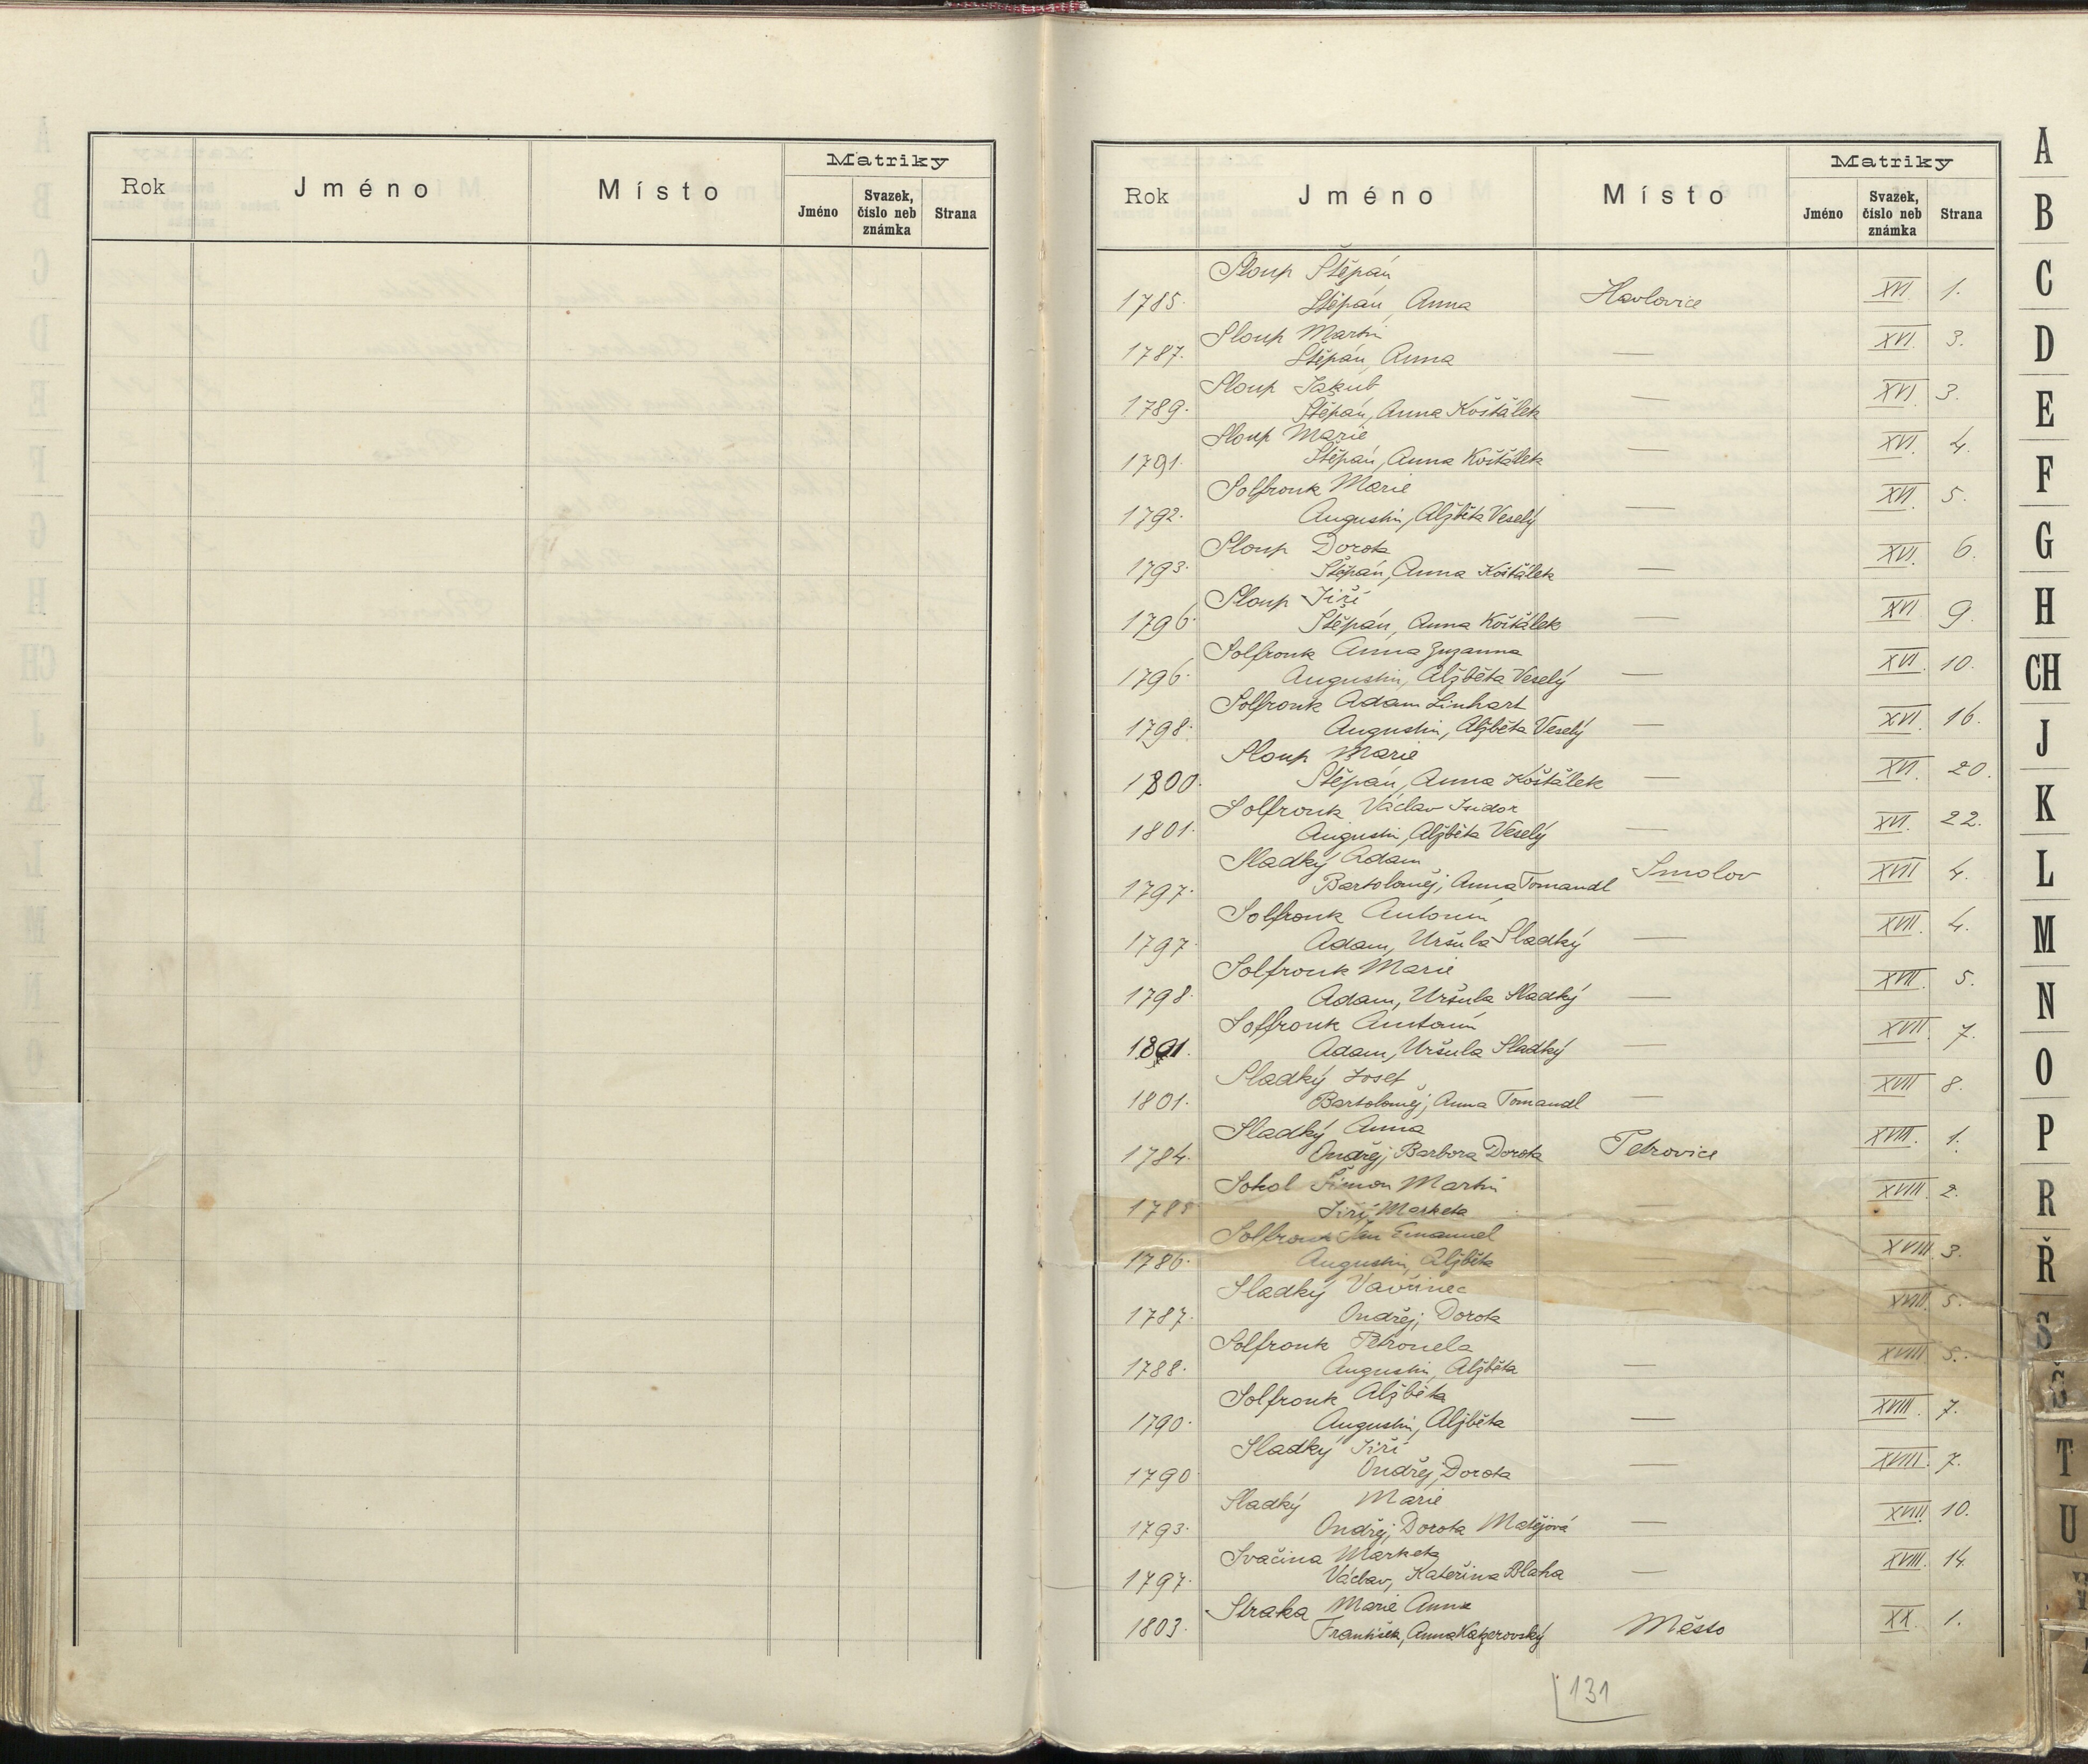 Rok Jméno Místo Matriky
Jméno Svazek, číslo neb známka Strana
Rok Jméno Místo Matriky
Jméno Svazek, číslo neb známka Strana
Sloup Štěpán
1785. Štěpán, Anna Havlovice XVI 1.
Sloup Martin
1787. Štěpán, Anna — XVI. 3.
Sloup Jakub
1789. Štěpán, Anna Koštálek — XVI. 3.
Sloup Marie
1791. Štěpán, Anna Koštálek — XVI. 4.
Solfronk Marie
1792. Augustin, Alžběta Veselý — XVI. 5.
Sloup Dorota
1793. Štěpán, Anna Koštálek — XVI. 6.
Sloup Jiří
1796. Štěpán, Anna Koštálek — XVI 9.
Solfronk Anna Zuzanna
1796. Augustin, Alžběta Veselý — XVI. 10.
Solfronk Adam Linhart
1798. Augustin, Alžběta Veselý — XVI. 16.
Sloup Marie
1800. Štěpán, Anna Koštálek — XVI. 20.
Solfronk Václav Isidor
1801. Augustin, Alžběta Veselý — XVI. 22.
Sladký Adam
1797. Bartoloměj, Anna Tomandl Smolov XVII 4.
Solfronk Antonín
1797. Adam, Uršula Sladký — XVII. 4.
Solfronk Marie
1798. Adam, Uršula Sladký — XVII. 5.
Solfronk Antonín
1801. Adam, Uršula Sladký — XVII. 7.
Sladký Josef
1801. Bartoloměj, Anna Tomandl — XVII 8.
Sladký Anna
1784. Ondřej, Barbora Dorota Petrovice XVIII. 1.
Sokol Šimon Martin
1785 Jiří, Marketa — XVIII. 2.
Solfronk Jan Emanuel
1786. Augustin, Alžběta — XVIII. 3.
Sladký Vavřinec
1787. Ondřej, Dorota — XVIII. 5.
Solfronk Petronela
1788. Augustin, Alžběta — XVIII 5.
Solfronk Alžběta
1790. Augustin, Alžběta — XVIII. 7.
Sladký Jiří
1790 Ondřej, Dorota — XVIII. 7.
Sladký Marie
1793. Ondřej, Dorota Matějová — XVIII. 10.
Svačina Marketa
1797. Václav, Kateřina Blaha — XVIII. 14.
Straka Marie Anna
1803. František, Anna Kazerovský Město XX. 1.
131
A
B
C
D
E
F
G
H
CH
J
K
L
M
N
O
P
R
Ř
S
Š
T
U